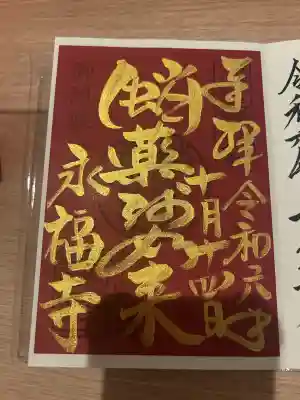 奉拝 令和六年
十月廿四日
蛸薬師如来
永福寺